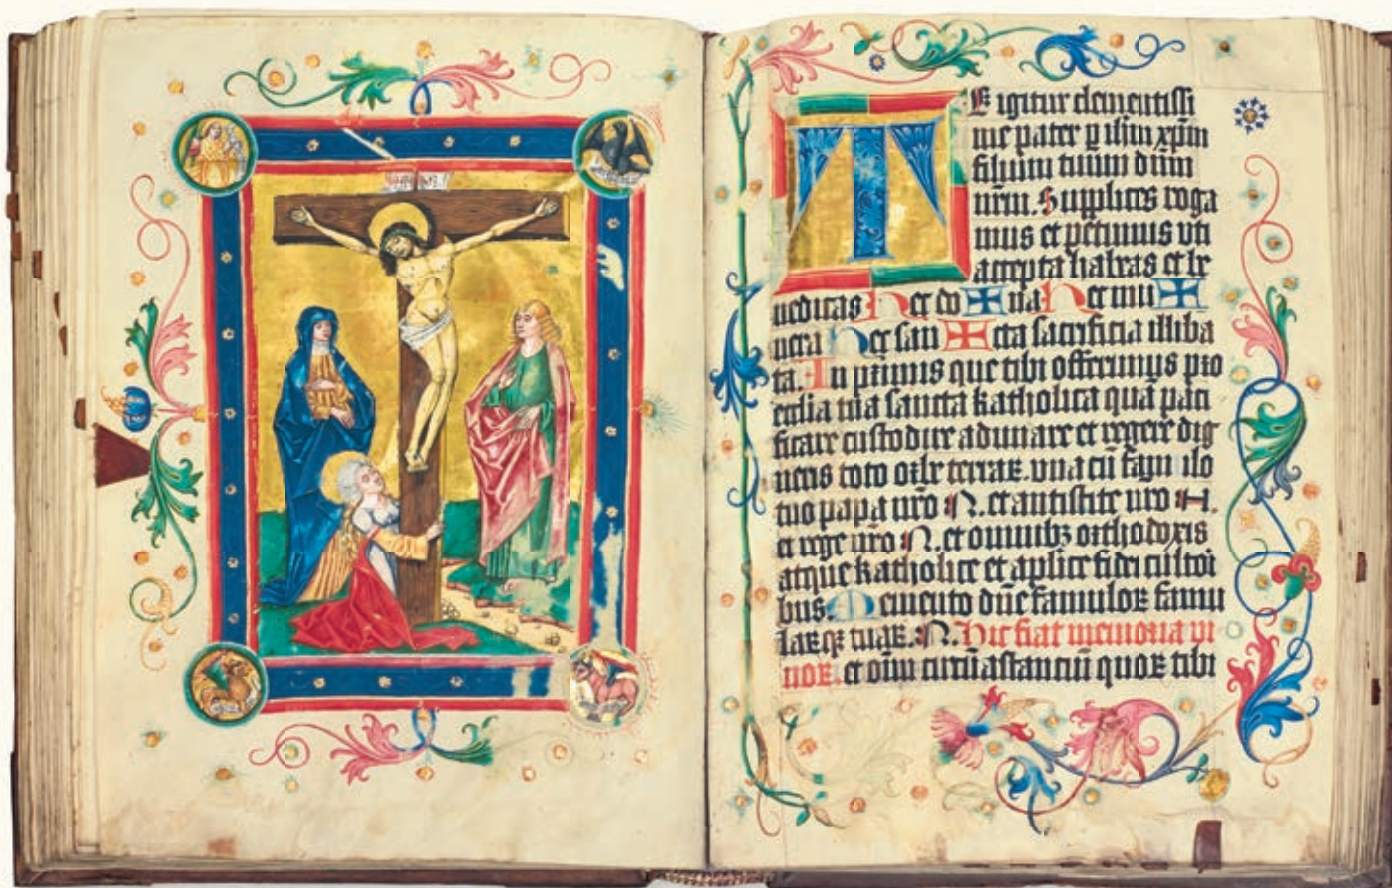 INRI
T E igitur clementissi
me pater p ihm xpm
filium tuum dnm
nrm. Supplices roga
mus et petimus vti
accepta habeas et be
nedicas Hec do ✠ na Hec mu ✠
nera Hec san ✠ cta sacrificia illiba
ta. In primis que tibi offerimus pro
ecclia tua sancta katholica quā paci
ficare custodire adunare et regere dig
neris toto orbe terraꝝ. vna cū famulo
tuo papa nro N. et antistite nro N.
et rege nro N. et omnibꝫ orthodoxis
atque katholice et aplice fidei cultoi
bus. Memento dne famuloꝝ famu
laꝝ qꝫ tuaꝝ. N. Hic fiat memoria vi
uoꝝ. et oīm circūastanciū quoꝝ tibi